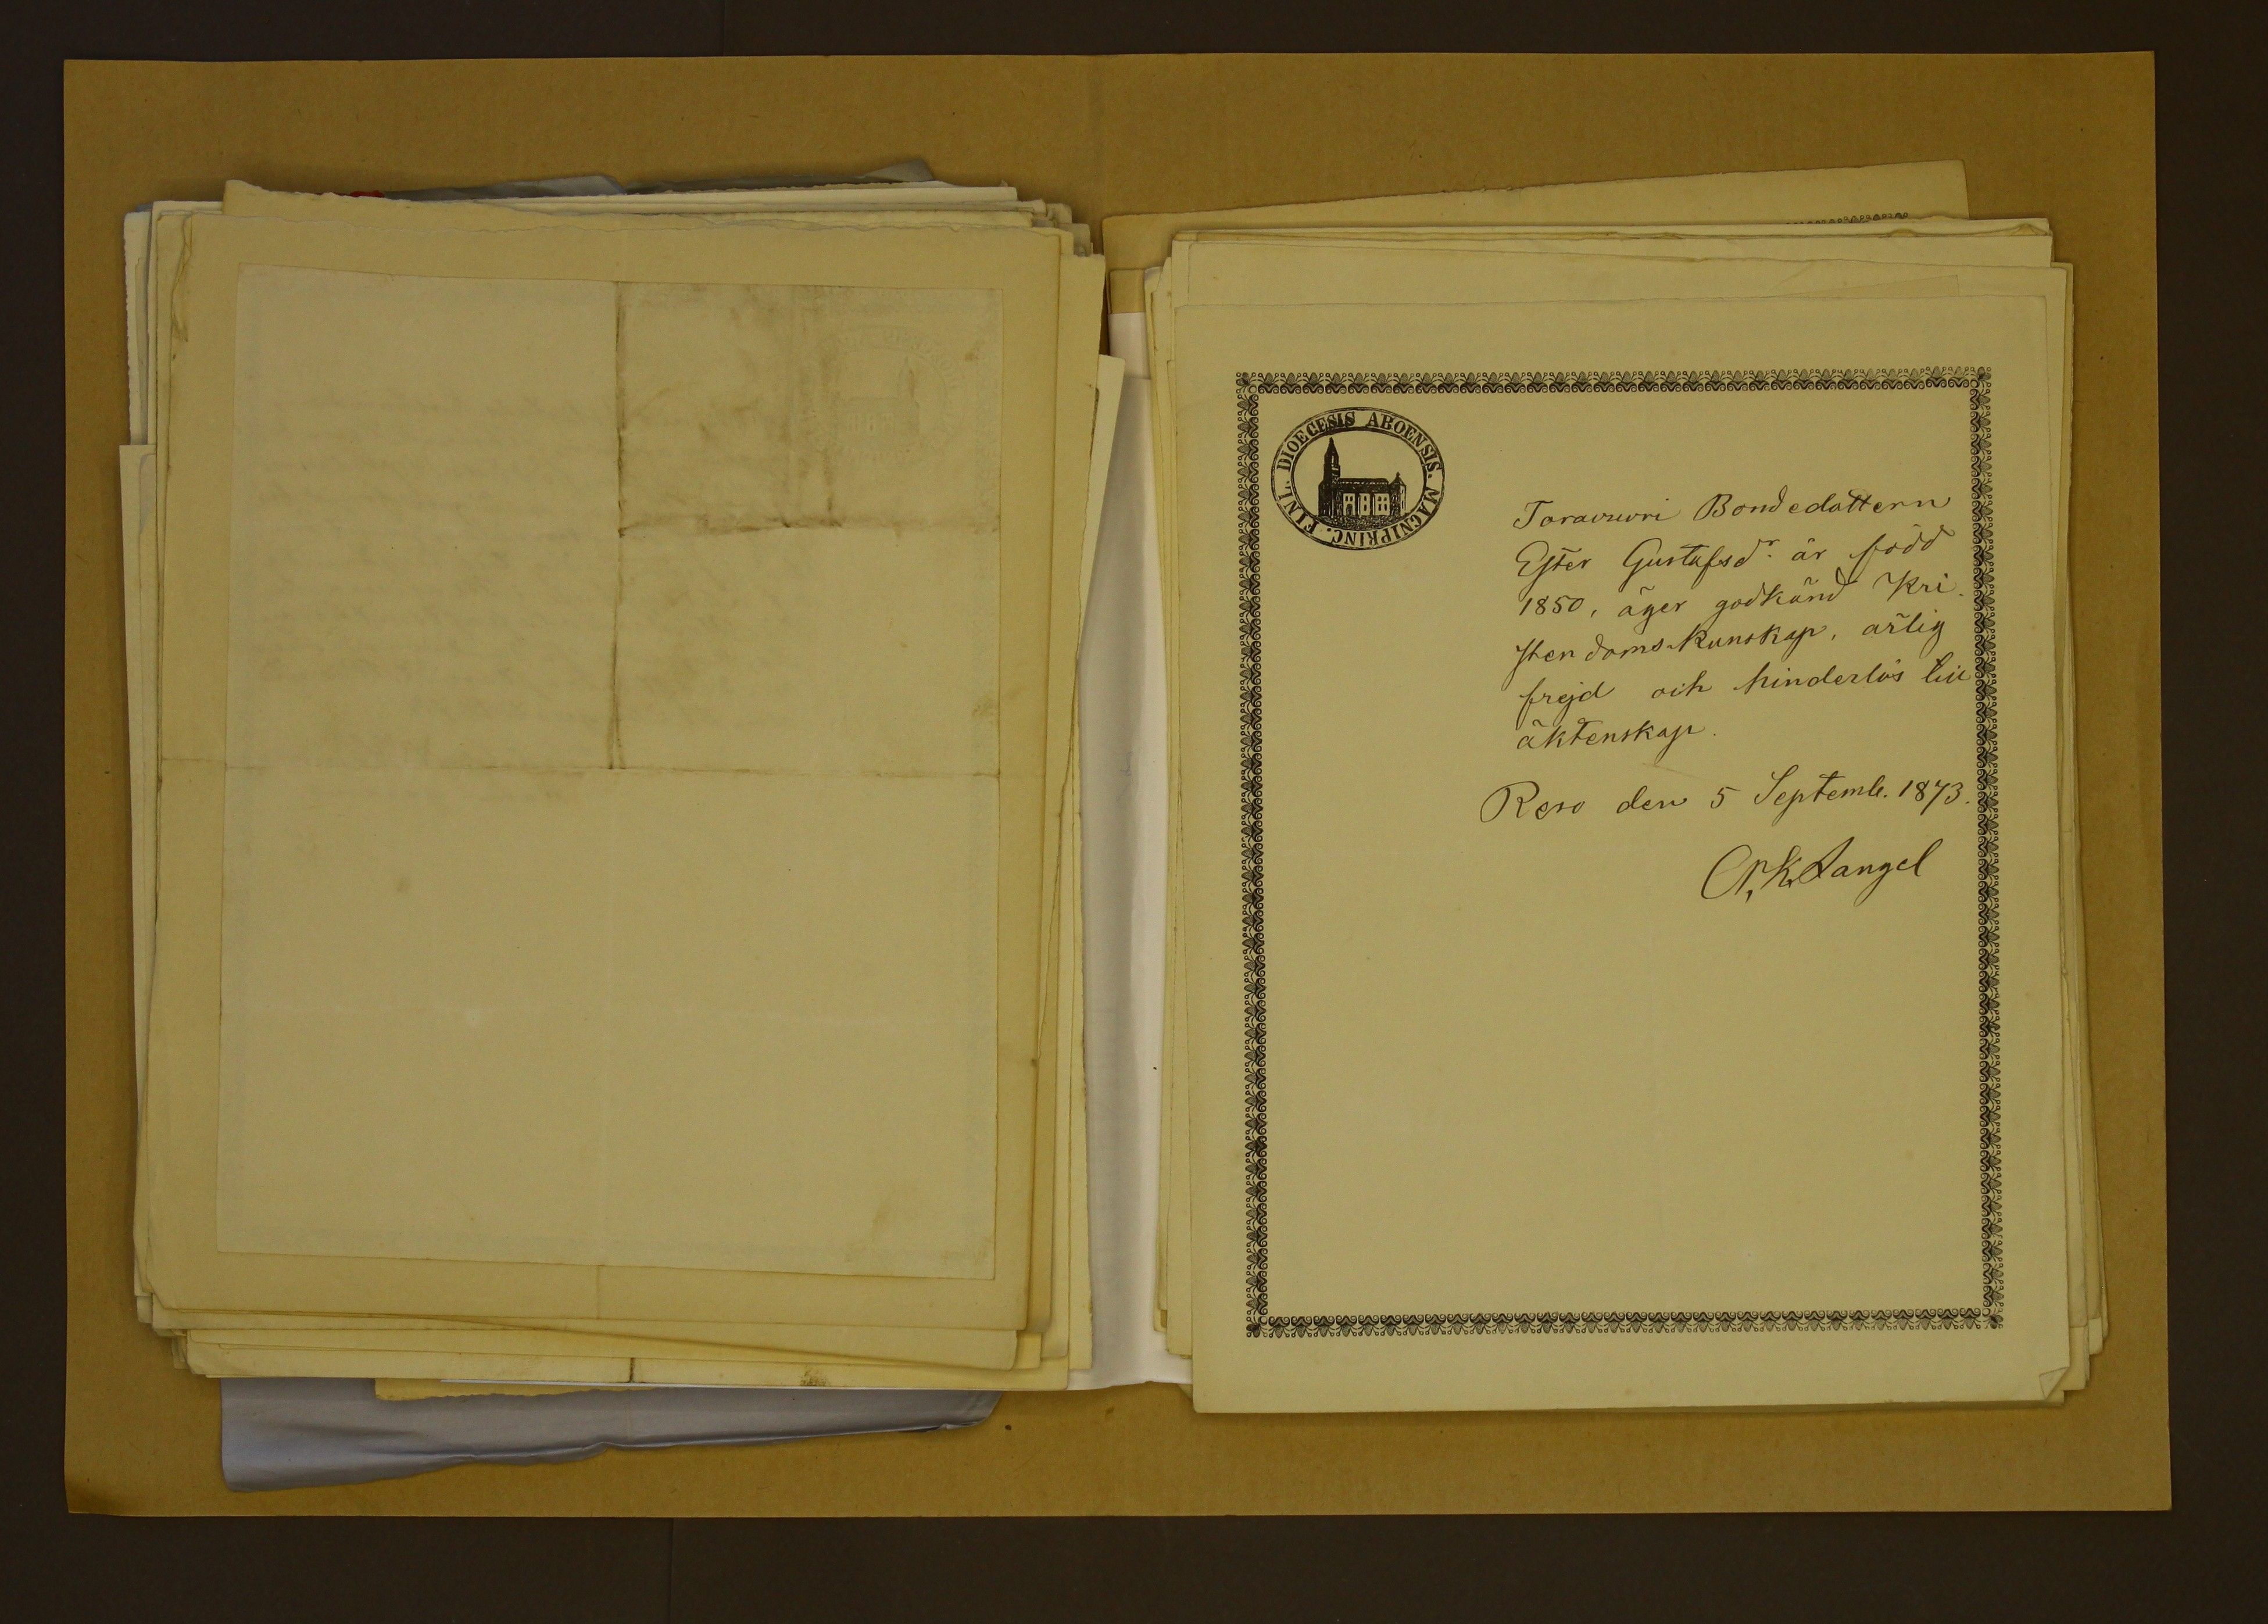 DIOECESIS ABOENSIS. MAGNI PRINC. FINL.
Taravuori Bondedottern
Ester Gustafsdr. är född
1850, äger godkänd Kri-
stendomskunskap, ärlig
frejd och hinderlös till
äktenskap.
Reso den 5 Septemb. 1873.
K. Tangel